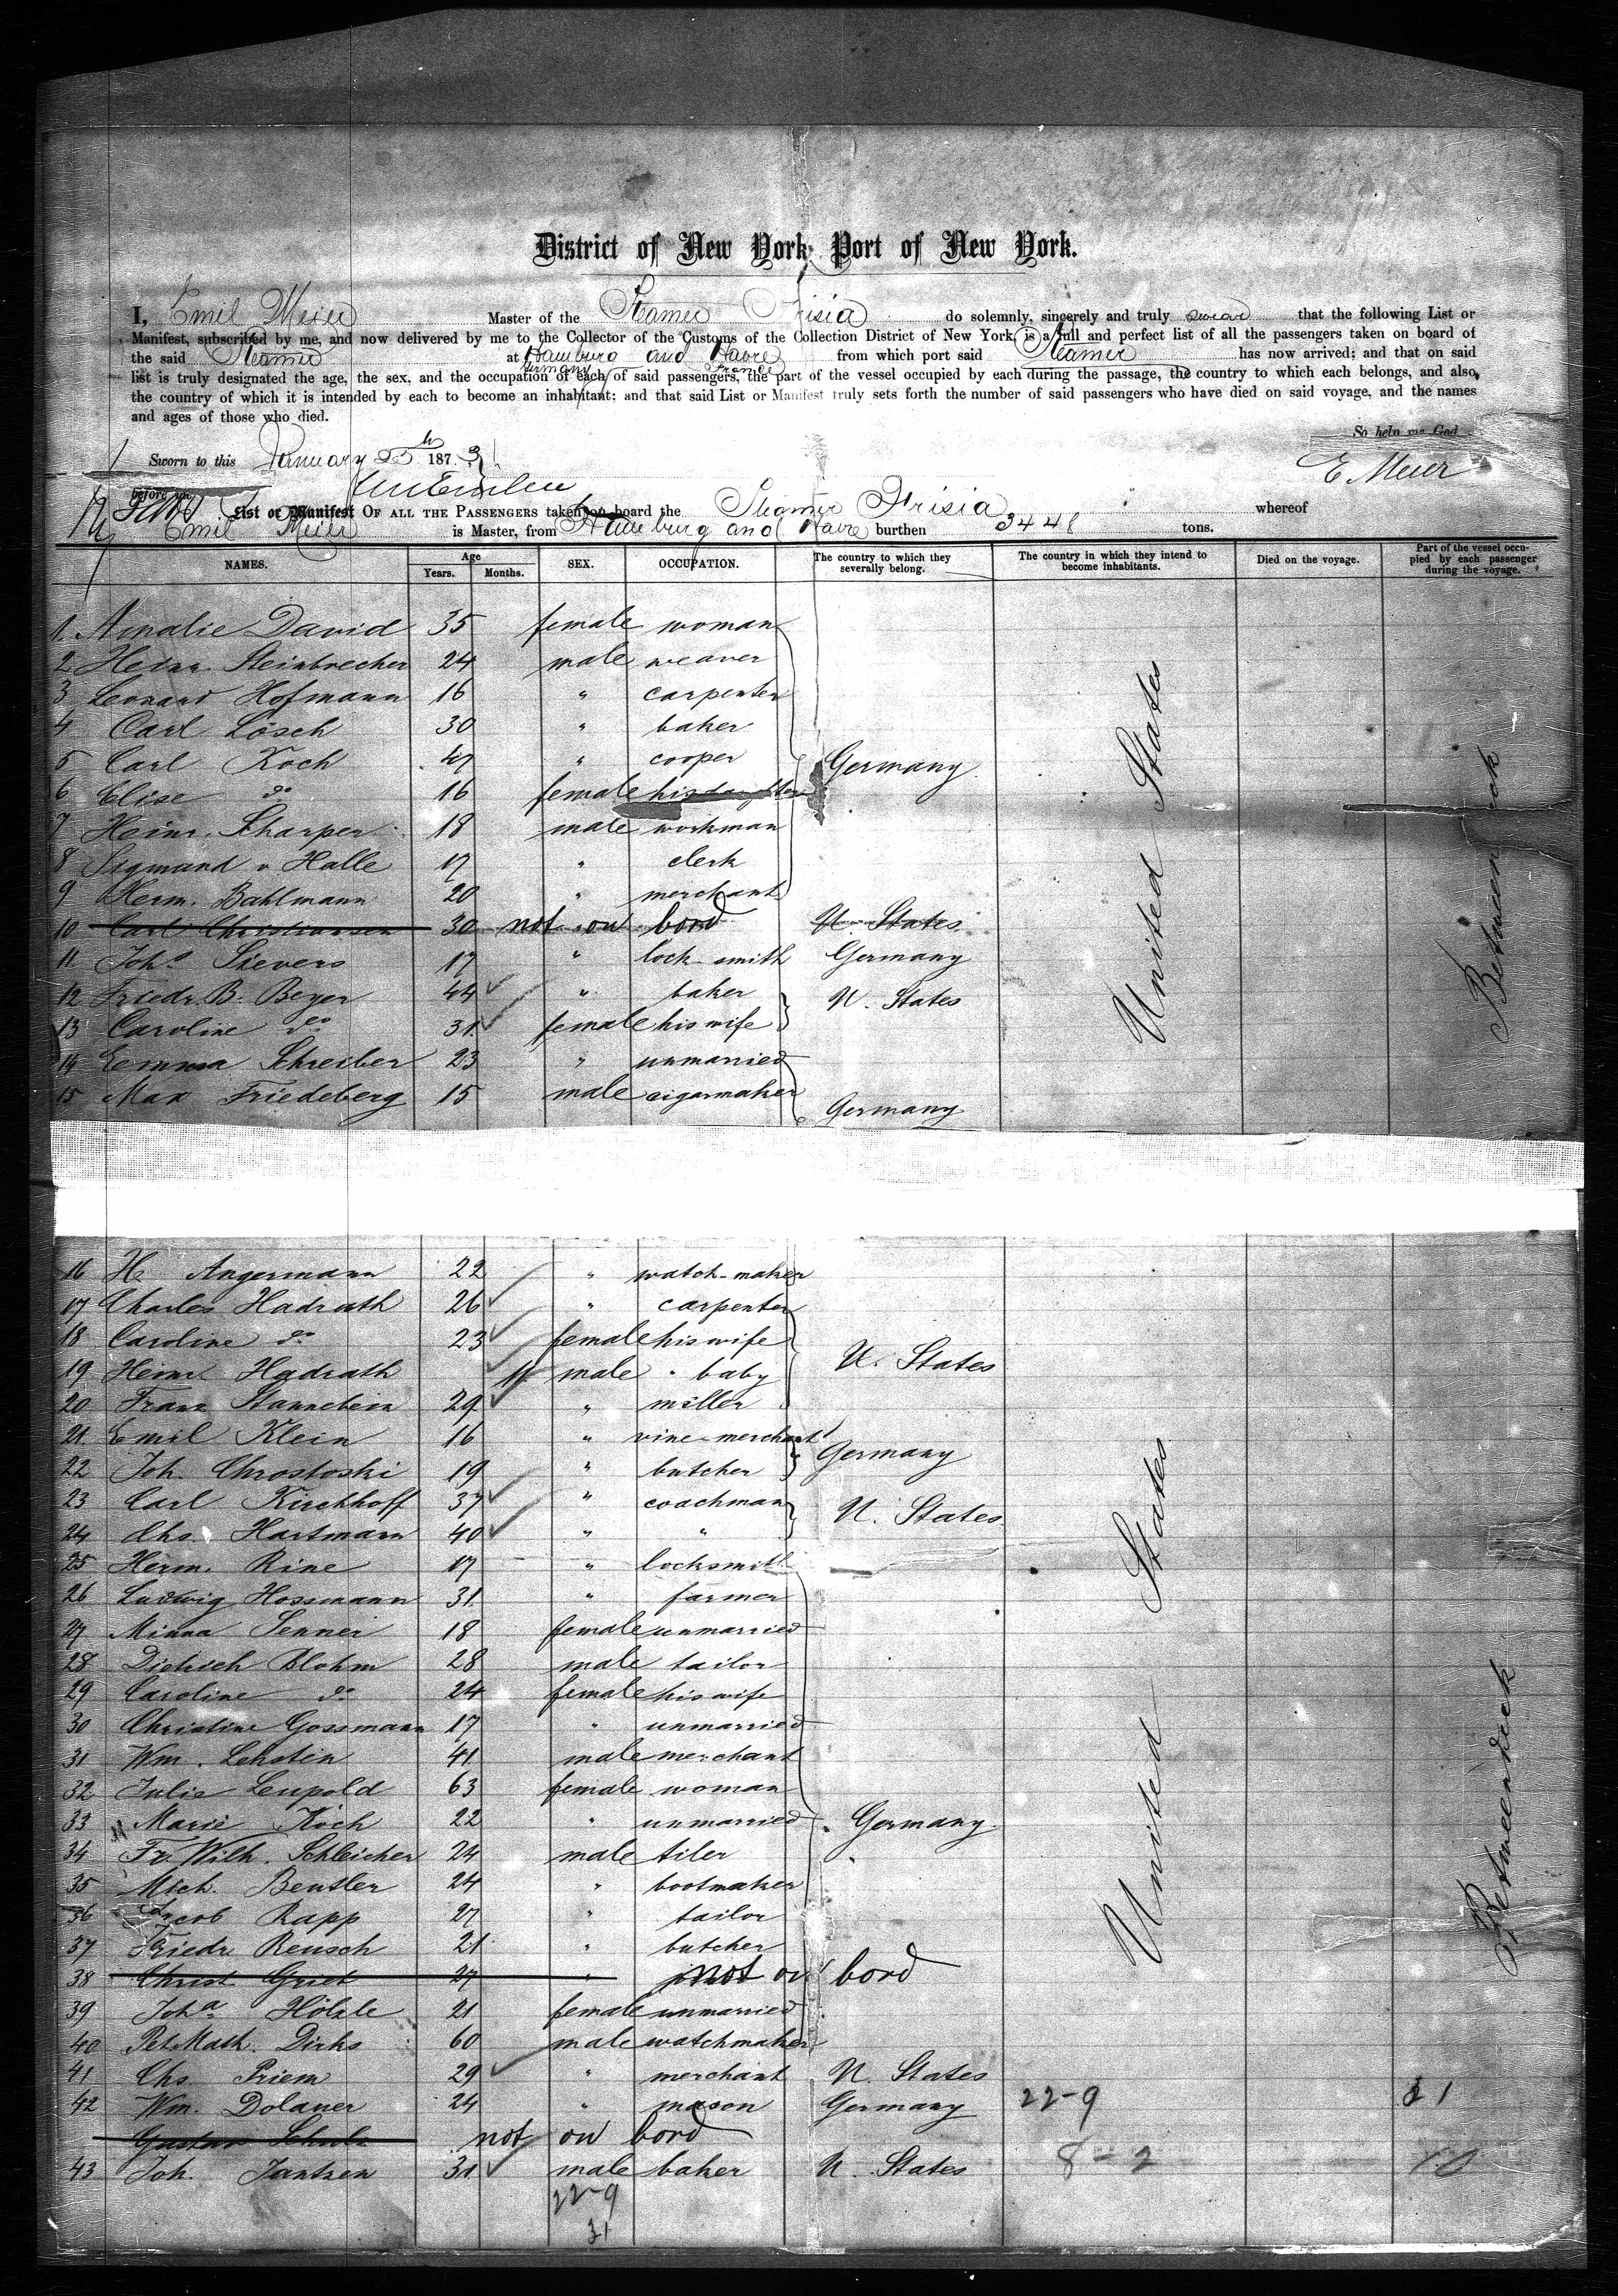 District of New York, Port of New York.
I, Emil Meier Master of the Steamer Frisia do solemnly, sincerely and truly swear that the following List or
Manifest, subscribed by me, and now delivered by me to the Collector of the Customs of the Collection District of New York, is a full and perfect list of all the passengers taken on board of
the said Steamer at Hamburg and Havre from which port said Steamer has now arrived; and that on said
Germany France
list is truly designated the age, the sex, and the occupation of each of said passengers, the part of the vessel occupied by each during the passage, the country to which each belongs, and also,
the country of which it is intended by each to become an inhabitant; and that said List or Manifest truly sets forth the number of said passengers who have died on said voyage, and the names
and ages of those who died.
So help me God
Sworn to this January 25th 1873
E Meier
before me
List or Manifest OF ALL THE PASSENGERS taken on board the Steamer Frisia whereof
Emil Meier is Master, from Hamburg and Havre burthen 3448 tons.
NAMES. Age Years. Months. SEX. OCCUPATION. The country to which they severally belong. The country in which they intend to become inhabitants. Died on the voyage. Part of the vessel occupied by each passenger during the voyage.
1. Amalie David 35 female woman
2 Heinr. Steinbrecher 24 male weaver
3 Leonard Hofmann 16 " carpenter
4 Carl Lösch 30 " baker
5 Carl Koch 47 " cooper Germany
6 Elise do 16 female his daughter
7 Heinr. Scharper 18 male workman
8 Sigmund v Halle 17 " clerk
9 Herm. Bahlmann 20 " merchant
10 Carl Christiansen 30 not on bord U. States
11 Johs Sievers 17 " lock-smith Germany
12 Friedr. B. Beyer 44 " baker U. States
13 Caroline do 31 female his wife
14 Emma Schreiber 23 " unmarried
15 Max Friedeberg 15 male cigarmaker Germany
United States
Betweendeck
16 H. Angermann 22 " watch-maker
17 Charles Hadrath 26 " carpenter
18 Caroline do 23 female his wife
19 Heinr. Hadrath 11 male " baby U. States
20 Franz Stannebein 29 " miller
21 Emil Klein 16 " vine-merchant
22 Joh. Chrostoski 19 " butcher Germany
23 Carl Kirchhoff 37 " coachman
24 Chs. Hartmann 40 " " U. States
25 Herm. Rine 17 " locksmith
26 Ludwig Hossmann 31 " farmer
27 Minna Senner 18 female unmarried
28 Dietrich Blohm 28 male tailor
29 Caroline do 24 female his wife
30 Christine Gossmann 17 " unmarried
31 Wm. Lehstin 41 male merchant
32 Julie Leupold 63 female woman
33 Marie Koch 22 " unmarried Germany
34 Fr. Wilh. Schleicher 24 male tiler
35 Mich. Beutler 24 " bootmaker
36 Jacob Rapp 27 " tailor
37 Friedr Reusch 21 " butcher
38 Christ Griet 27 " not on bord
39 Joha Hölzle 21 female unmarried
40 Pet. Math. Dirks 60 male watchmaker
41 Chs. Priem 29 " merchant U. States
42 Wm. Dolauer 24 " mason Germany 22-9
Gustav Schulz not on bord
43 Joh. Jantzen 31 male baker U. States 8-2
22-9
31
United States
Betweendeck